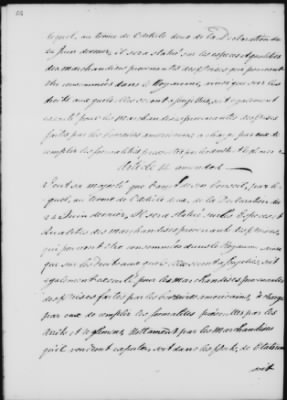 lequel, au terme de l'article deux de la Déclaration du
24 Juin dernier, il sera statué sur les especes et qualités
des marchandises provenantes des prises qui pourront
être consommées dans le Royaume, ainsi que sur les
droits aux quels elles seront assujetties, soit egalement
executé pour les marchandises provenantes des prises
faites par les Corsaires americains, a charge par eux de
remplir les formalités
article 14 amended
Veut sa majesté que l'arrêt de son Conseil, par le
quel, au terme de l'article deux, de la Declaration du
24 Juin dernier, il sera statué sur les Especes et
Qualités des marchandises provenant des prises,
qui pourront être consommées dans le Royaume ainsi
que sur les Droits aux quels elles seront assujetties, soit
egalement executé pour les marchandises provenantes
des prises faites par les Corsaires americains, à charge
par eux de remplir les formalités prescrittes par les
arrêts et reglemens, notamment par les marchandises
qu'ils voudront exporter, soit dans les Ports, de
soit